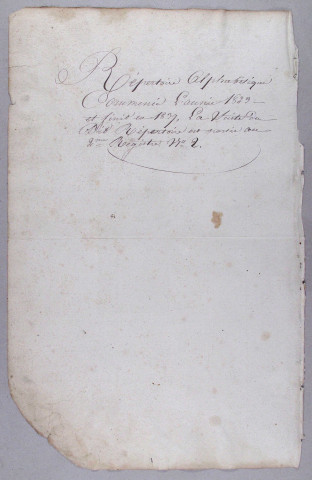 Répertoire Alphabétique
Commencé L'année 1823
et finit en 1837. La Suite du
Répertoire est portée au
2me Registre No 2.